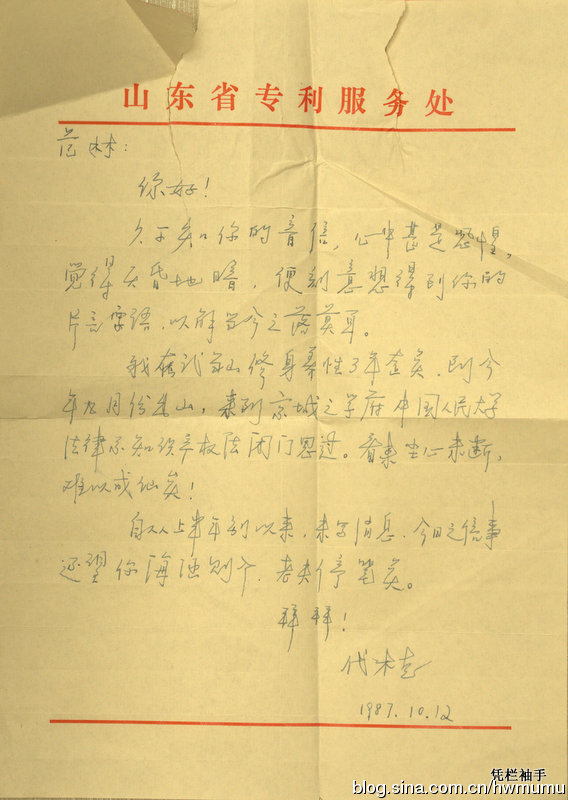 山东省专利服务处
范林：
你好！
久不知你的音信，心中甚是恐惶，
觉得天昏地暗，便刻意想得到你的
片言零语，以解当今之落莫耳。
我在武当山修身养性了年查矣，到今
年九月份出山，来到京城之学府中国人民大学
法律系知识产权法闭门思过。看来尘心未断，
难以成仙矣！
自从上半年别以来，未写消息，今日之信事
还望你海涵则个，老夫停笔矣。
拜拜！
1987.10.12
凭栏袖手
blog.sina.com.cn/hwmumu